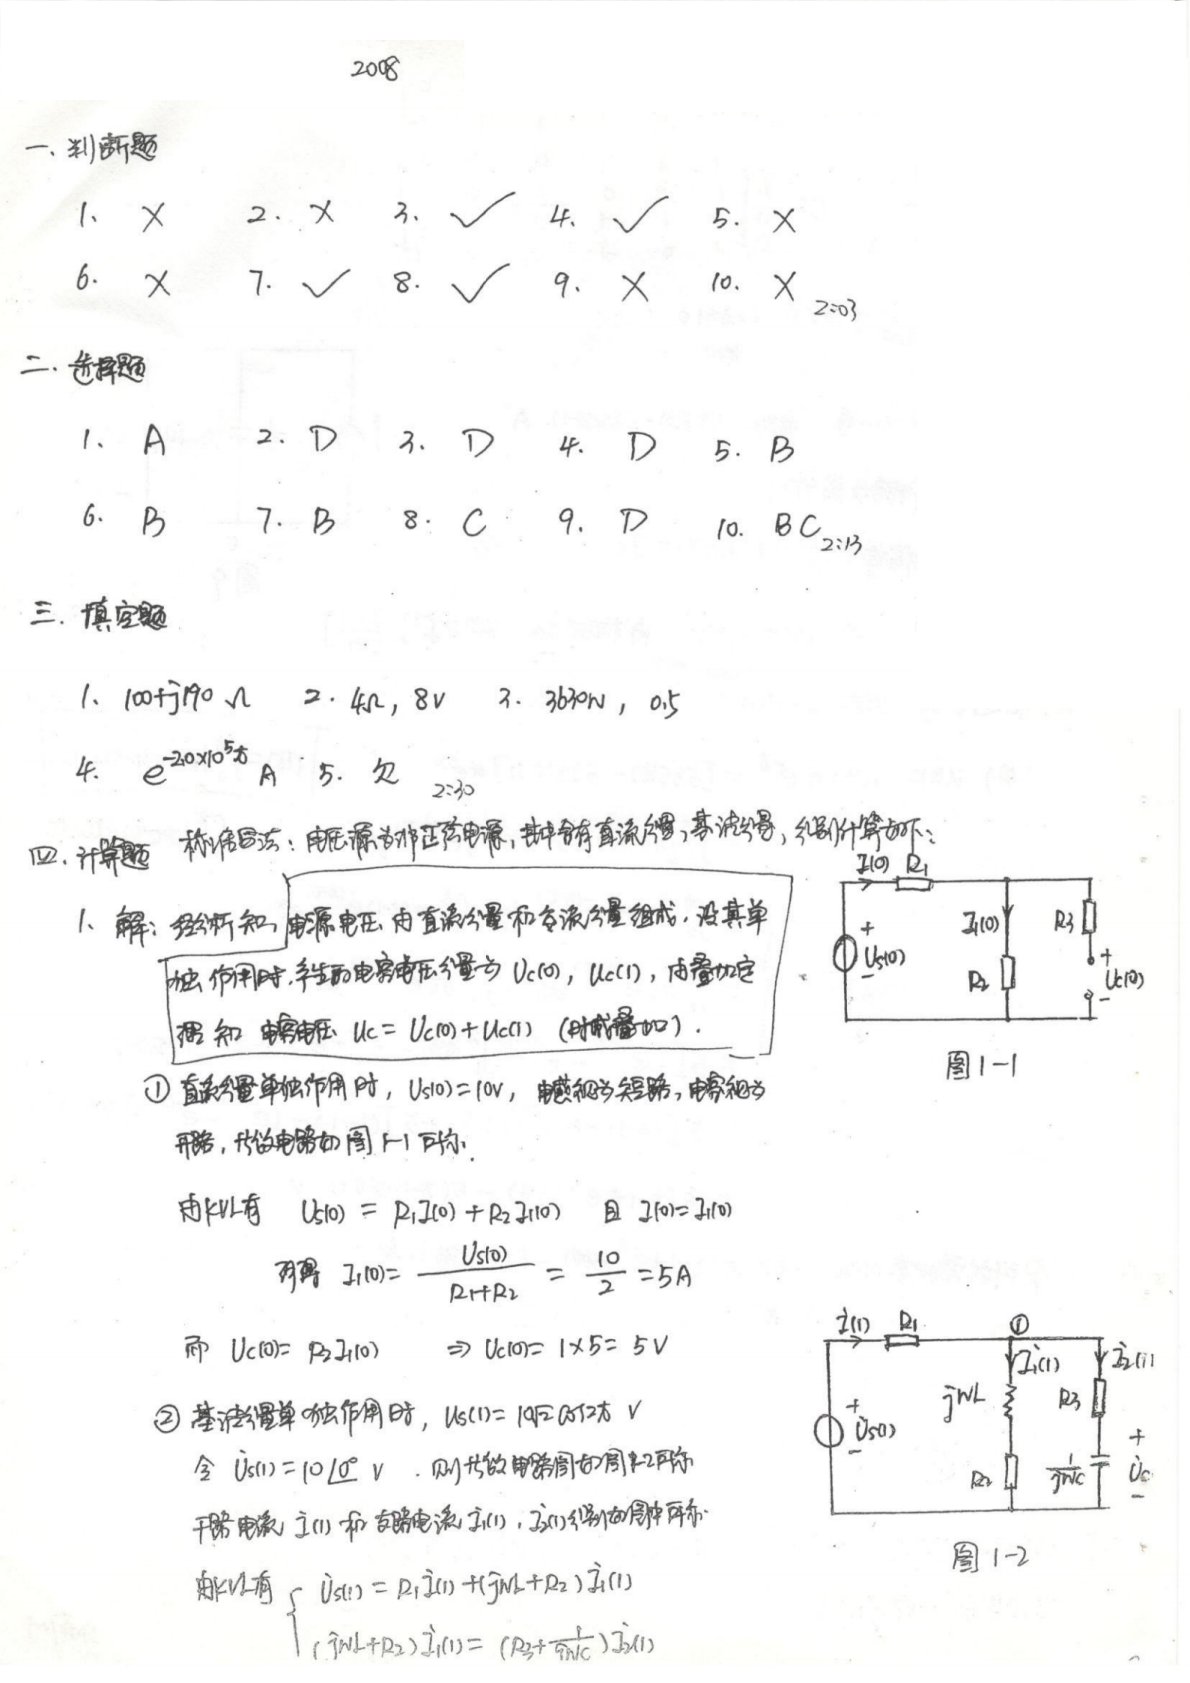 2008
一、判断题
1. × 2. × 3. ✓ 4. ✓ 5. ×
6. × 7. ✓ 8. ✓ 9. × 10. × 2:03
二、选择题
1、 A 2. D 3. D 4. D 5. B
6. B 7. B 8. C 9. D 10. BC 2:13
三、填空题
1、 100+j190 Ω 2. 4Ω, 8V 3. 3630W, 0.5
4. e^{-20×10^5t} A 5. 欠 2:30
四、计算题 标准写法:电压源为非正弦电源,其中含有直流分量,基波分量,分别计算如下:
1、解:经分析知,电源电压由直流分量和交流分量组成,设其单
独作用时,产生的电容电压分量为 Uc(0), Uc(1), 由叠加定
理知 电容电压 Uc = Uc(0) + Uc(1) (时域叠加).
I(0) R1
+ Us(0) - I1(0) R2 R3 + Uc(0) -
图1-1
① 直流分量单独作用时, Us(0)=10V, 电感视为短路,电容视为
开路,等效电路如图1-1所示.
由KVL有 Us(0) = R1I(0) + R2I1(0) 且 I(0)=I1(0)
可得 I1(0) = Us(0)/(R1+R2) = 10/2 = 5A
而 Uc(0)= R2I1(0) ⇒ Uc(0)= 1×5= 5V
② 基波分量单独作用时, Us(1)=10√2cos2t V
令 U̇s(1)=10∠0° V . 则等效电路图如图1-2所示
干路电流 İ(1) 和支路电流 İ1(1), İ2(1)分别如图中所示.
İ(1) R1 ①
+ U̇s(1) - İ1(1) jWL R2 İ2(1) R3 1/jWC + U̇c -
图1-2
由KVL有 { U̇s(1) = R1İ(1) + (jWL+R2) İ1(1)
(jWL+R2) İ1(1) = (R3+1/jWC) İ2(1)